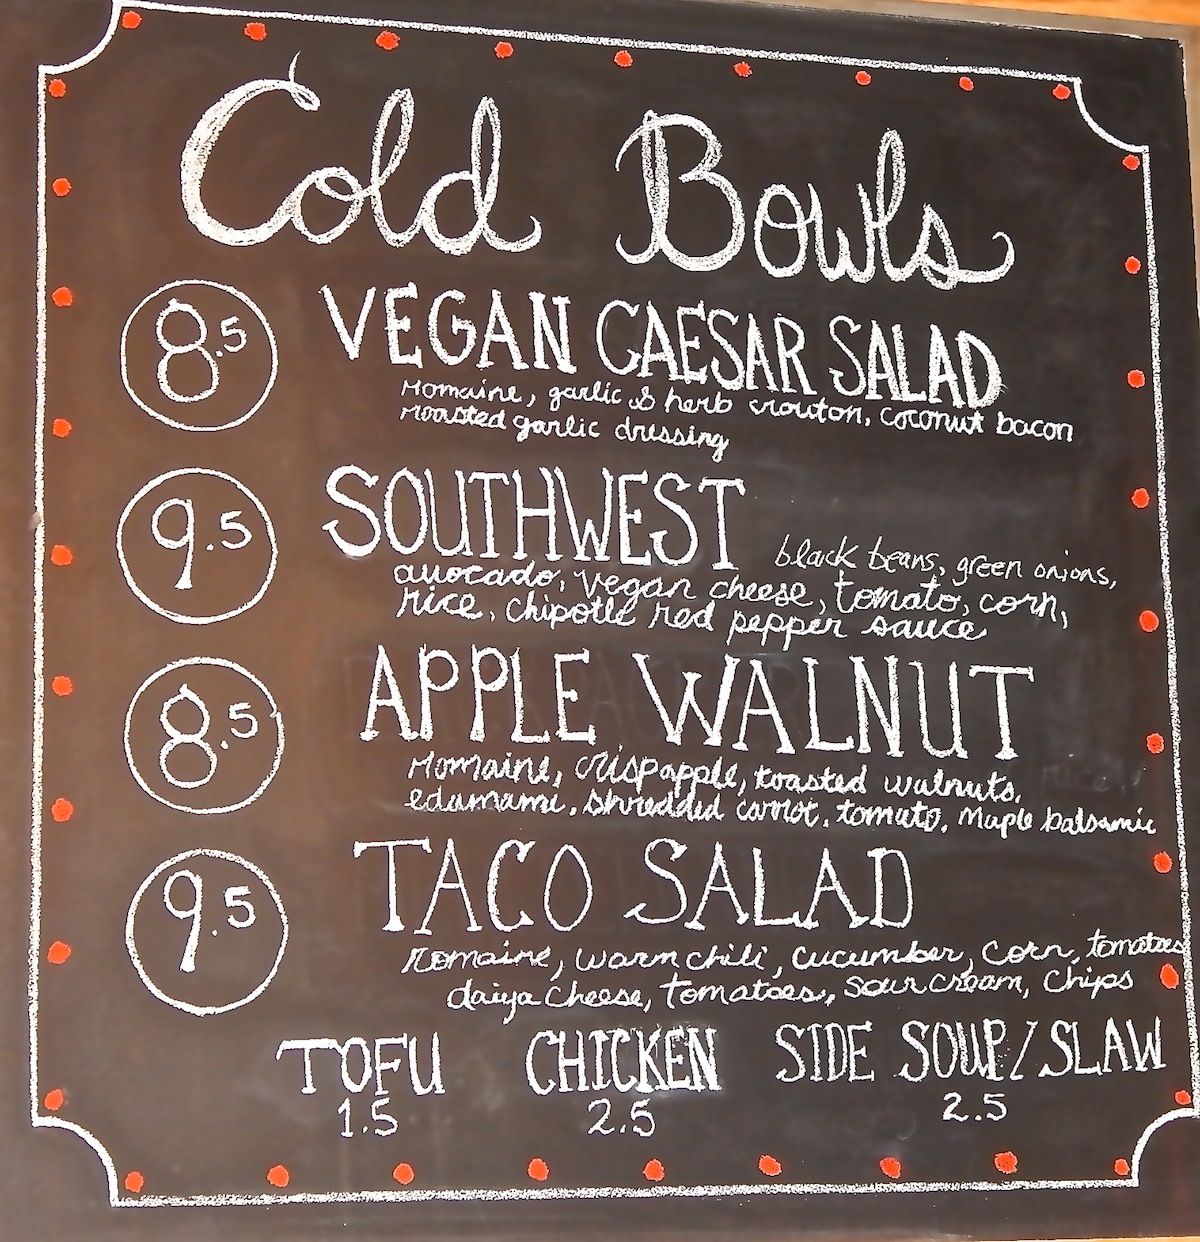 Cold Bowls
8.5 VEGAN CAESAR SALAD
romaine, garlic & herb crouton, coconut bacon
roasted garlic dressing
9.5 SOUTHWEST black beans, green onions,
avocado, vegan cheese, tomato, corn,
rice, chipotle red pepper sauce
8.5 APPLE WALNUT
romaine, crisp apple, toasted walnuts,
edamami, shredded carrot, tomato, maple balsamic
9.5 TACO SALAD
romaine, warm chili, cucumber, corn, tomatoes
daiya cheese, tomatoes, sour cream, chips
TOFU CHICKEN SIDE SOUP/SLAW
1.5 2.5 2.5